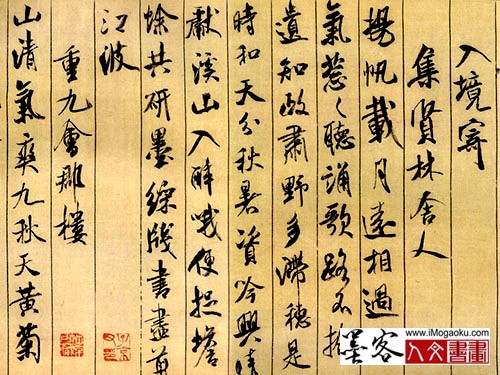 入境寄
集賢林舍人
揚帆載月遠相過
氣葱々聽誦歌路不拾
遺知政肅野多滯穗是
時和天分秋暑資吟興晴
獻溪山入醉哦便捉蟾
蜍共研墨綵牋書盡剪
江波
重九會郡樓
山清氣爽九秋天黃菊
www.iMogaoku.com
墨客
人文書畫